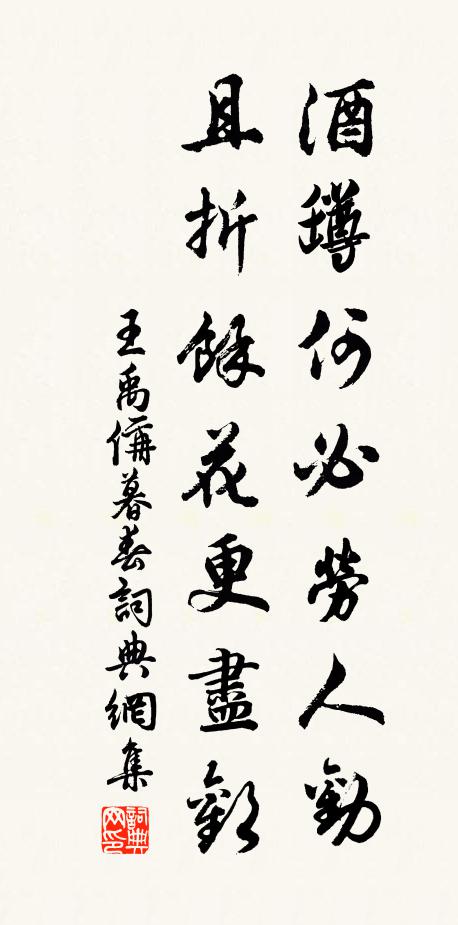 酒罇何必勞人勸
且折餘花更盡歡
王禹偁暮春詞典網集
詞典网印